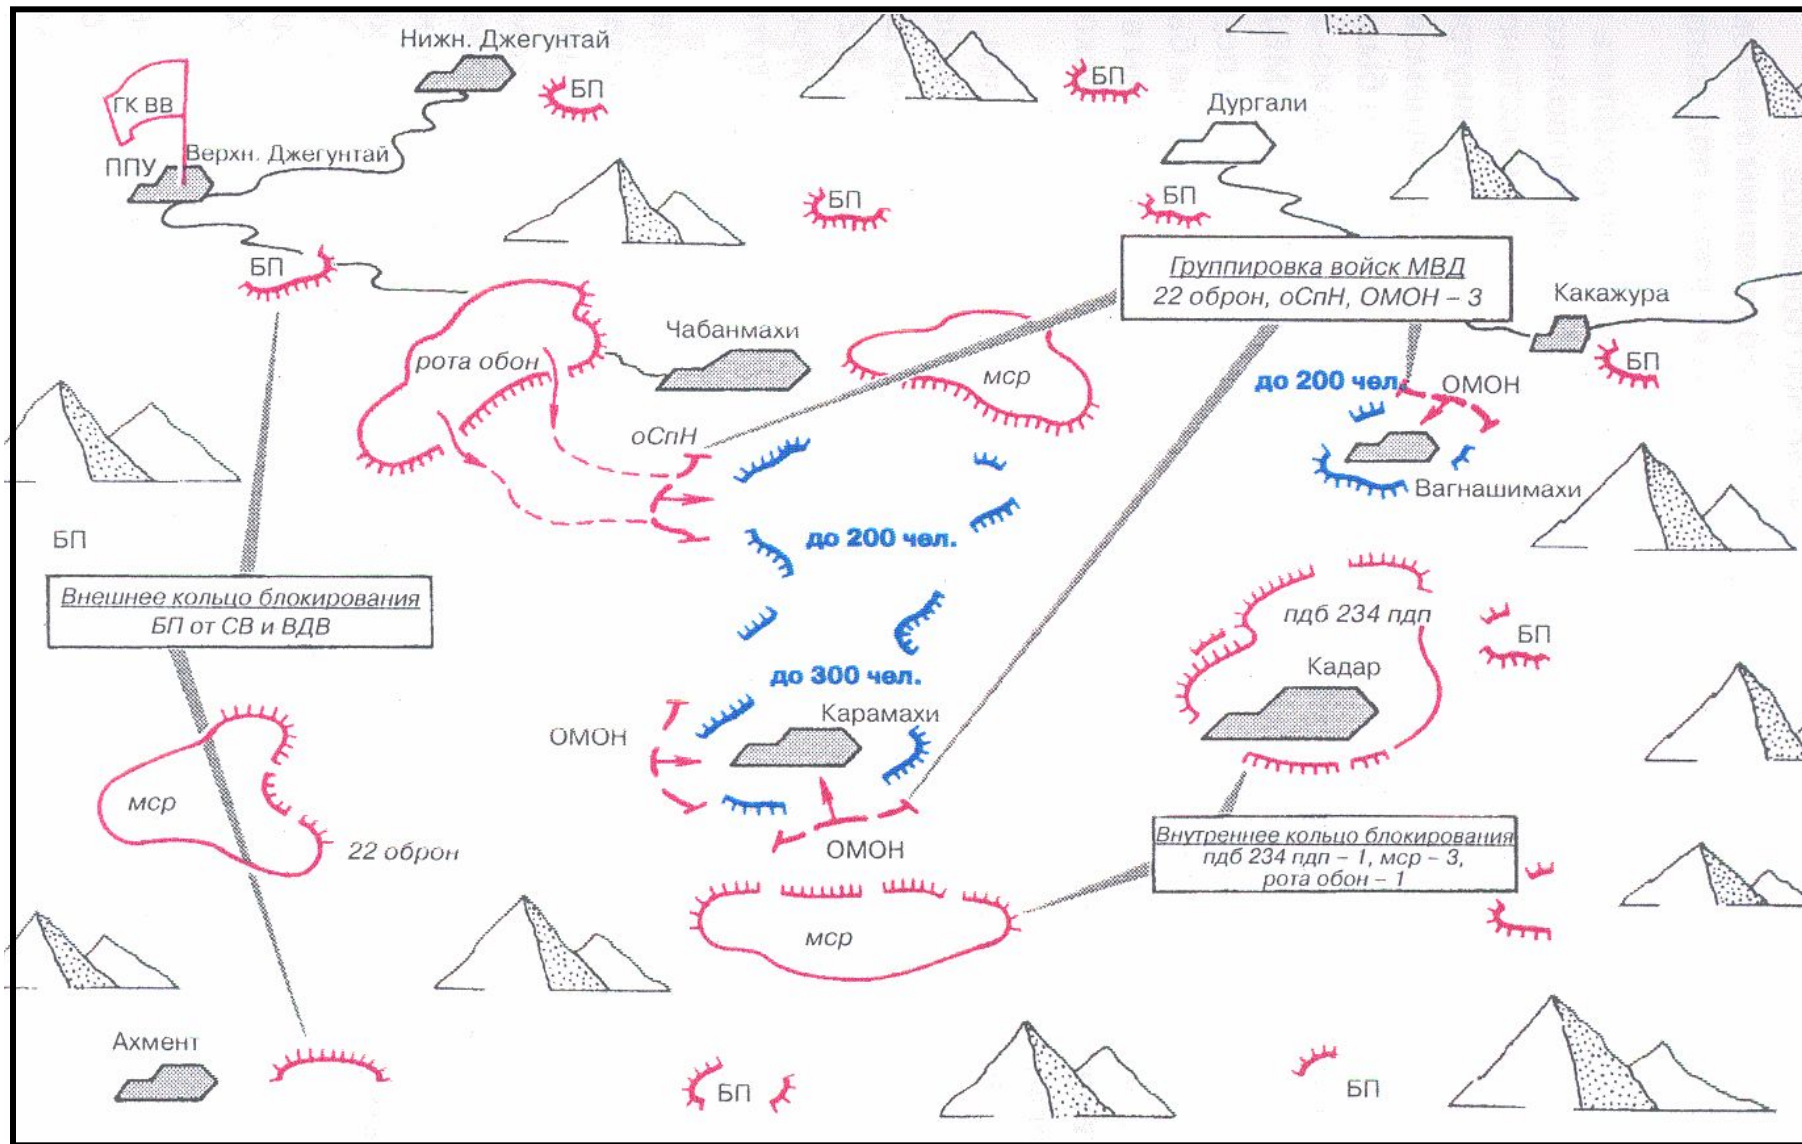 Нижн. Джегунтай
БП
БП
ГК ВВ
Дургали
ППУ
Верхн. Джегунтай
БП
БП
БП
Группировка войск МВД
22 оброн, оСпН, ОМОН – 3
Какажура
Чабанмахи
рота обон
мср
БП
до 200 чел.
ОМОН
оСпН
Вагнашимахи
до 200 чел.
БП
Внешнее кольцо блокирования
БП от СВ и ВДВ
пдб 234 пдп
БП
Кадар
до 300 чел.
Карамахи
ОМОН
мср
22 оброн
ОМОН
Внутреннее кольцо блокирования
пдб 234 пдп – 1, мср – 3,
рота обон – 1
мср
Ахмент
БП
БП